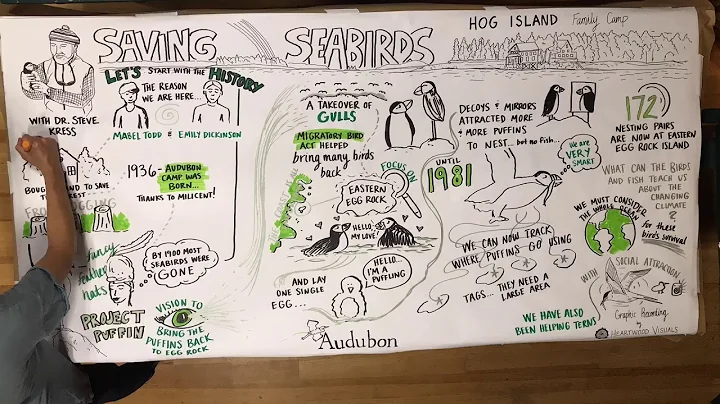 SAVING SEABIRDS
HOG ISLAND Family Camp
WITH DR. STEVE
KRESS
LET'S START WITH THE HISTORY
THE REASON
WE ARE HERE...
MABEL TODD & EMILY DICKINSON
BOUG
AND TO SAVE
REST
FROM LOGGING
1936- AUDUBON
CAMP WAS
BORN...
THANKS TO MILICENT!
Fancy
feather
hats
BY 1900 MOST
SEABIRDS WERE
GONE
PROJECT
PUFFIN
VISION TO
BRING THE
PUFFINS BACK
TO EGG ROCK
A TAKEOVER OF
GULLS
MIGRATORY BIRD
ACT HELPED
bring many birds
back
FOCUS ON
EASTERN
EGG ROCK
HELLO,
MY LOVE!
AND LAY
ONE SINGLE
EGG...
HELLO...
I'M A
PUFFLING
Audubon
DECOYS & MIRRORS
ATTRACTED MORE
& MORE PUFFINS
TO NEST... but no FISH...
UNTIL
1981
We are
VERY
SMART
WE CAN NOW TRACK
WHERE PUFFINS GO USING
TAGS... THEY NEED A
LARGE AREA
WE HAVE ALSO
BEEN HELPING TERNS
172
NESTING PAIRS
ARE NOW AT EASTERN
EGG ROCK ISLAND
WHAT CAN THE BIRDS
AND FISH TEACH US
ABOUT THE
CHANGING
CLIMATE
?
WE MUST CONSIDER
THE WHOLE OCEAN
for these
bird's survival
WITH SOCIAL ATTRACTION
Graphic Recording
by
HEARTWOOD VISUALS